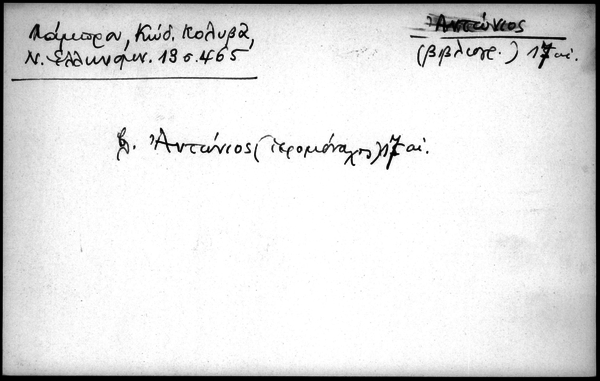 Λάμπρου, Κώδ. Κολυβᾶ,
Ν. Ἑλληνομν. 13 σ. 465
Ἀντώνιος
(βιβλιογρ.) 17 αἰ.
β. Ἀντώνιος (ἱερομόναχος) 17 αἰ.